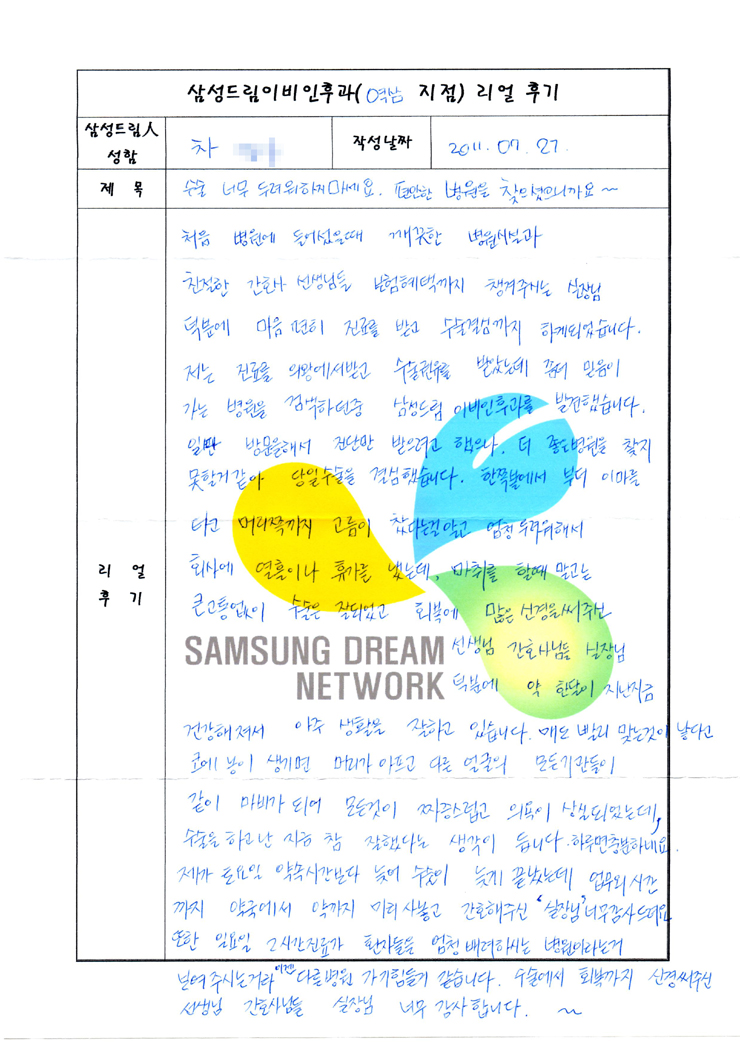 삼성드림이비인후과(역삼 지점) 리얼 후기
삼성드림人 성함
차
작성날짜
2011. 07. 27.
제 목
수술 너무 두려워하지마세요. 편안한 병원을 찾으셨으니까요~
리 얼 후 기
처음 병원에 들어섰을때 깨끗한 병원시설과
친절한 간호사 선생님들 보험혜택까지 챙겨주시는 실장님
덕분에 마음 편히 진료를 받고 수술결심까지 하게되었습니다.
저는 진료를 의왕에서받고 수술권유를 받았는데 좀더 믿음이
가는 병원을 검색하던중 삼성드림 이비인후과를 발견했습니다.
일단 방문을해서 진단만 받으려고 했으나, 더 좋은병원을 찾지
못할거같아 당일수술을 결심했습니다. 한쪽볼에서 부터 이마를
타고 머리쪽까지 고름이 찼다는걸알고 엄청 두려워해서
회사에 열흘이나 휴가를 냈는데, 마취를 할때 말고는
큰고통없이 수술은 잘되었고 회복에 많은 신경을써주신
선생님 간호사님들 실장님
덕분에 약 한달이 지난지금
SAMSUNG DREAM
NETWORK
건강해져서 아주 생활을 잘하고 있습니다. 매도 빨리 맞는것이 낳다고
코에 농이 생기면 머리가 아프고 다른 얼굴의 모든기관들이
같이 마비가 되어 모든것이 짜증스럽고 의욕이 상실되었는데,
수술을 하고난 지금 참 잘했다는 생각이 듭니다. 하루면충분하네요.
제가 토요일 약속시간보다 늦어 수술이 늦게 끝났는데 업무외 시간
까지 약국에서 약까지 미리 사놓고 간호해주신 '실장님' 너무감사드려요
또한 일요일 2시간진료가 환자들을 엄청 배려하시는 병원이라는걸
보여주시는거라 이젠 다른병원 가기힘들거 같습니다. 수술에서 회복까지 신경써주신
선생님 간호사님들 실장님 너무 감사합니다. ~